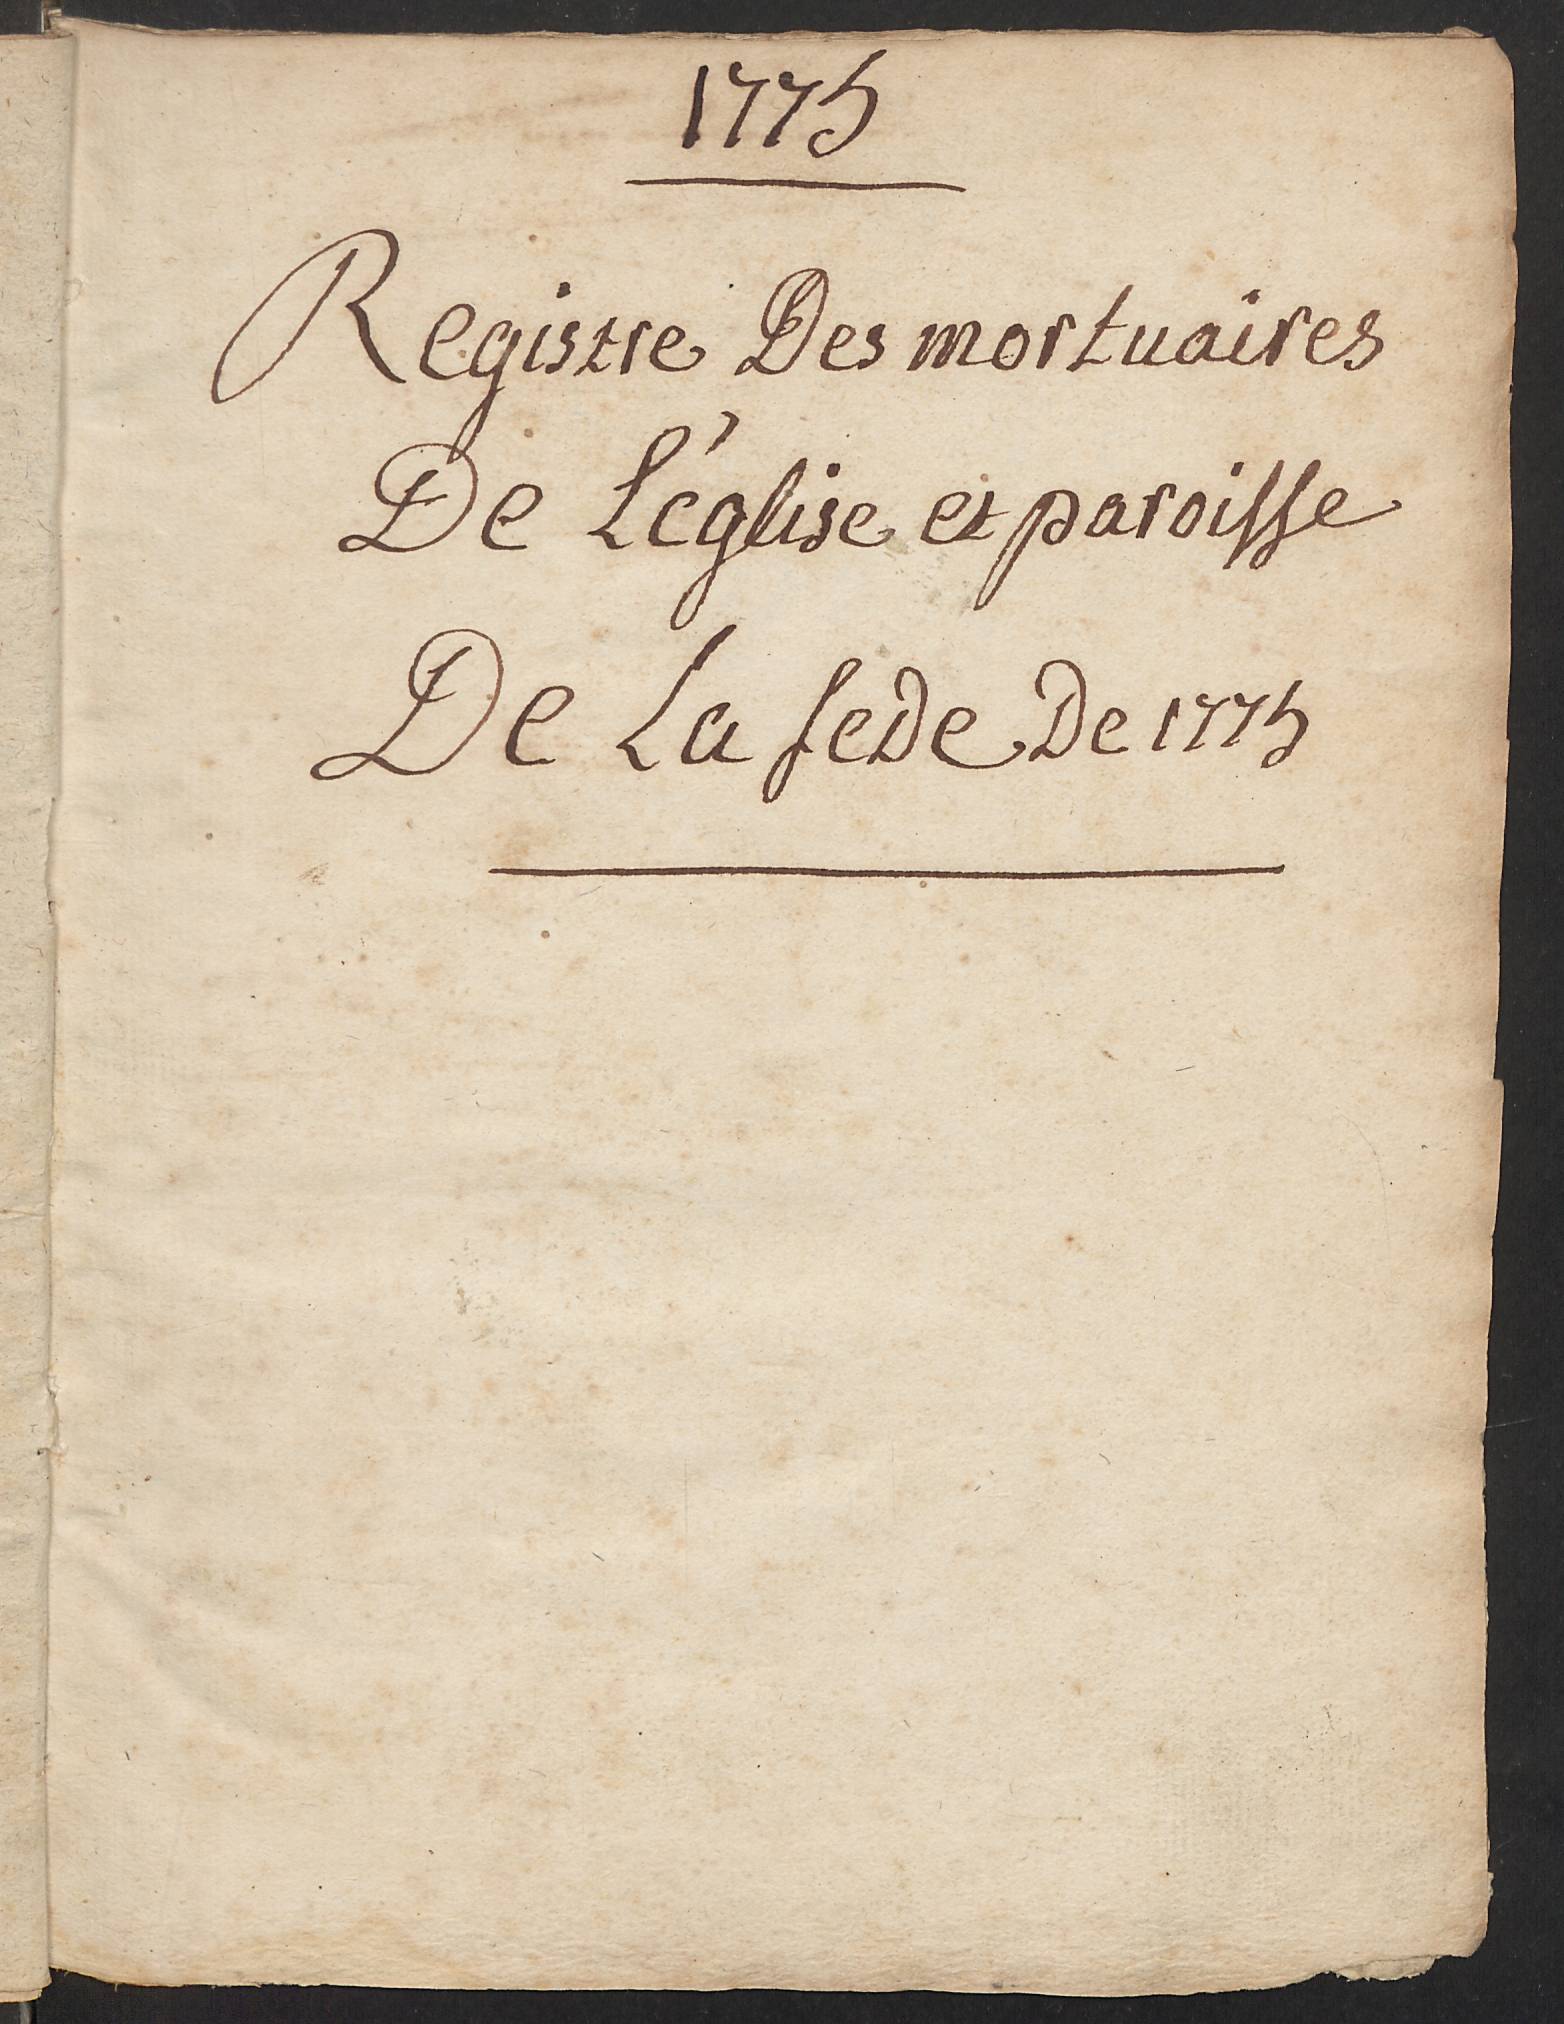 1775
Registre Des mortuaires
De L'église et paroisse
De La sede De 1775